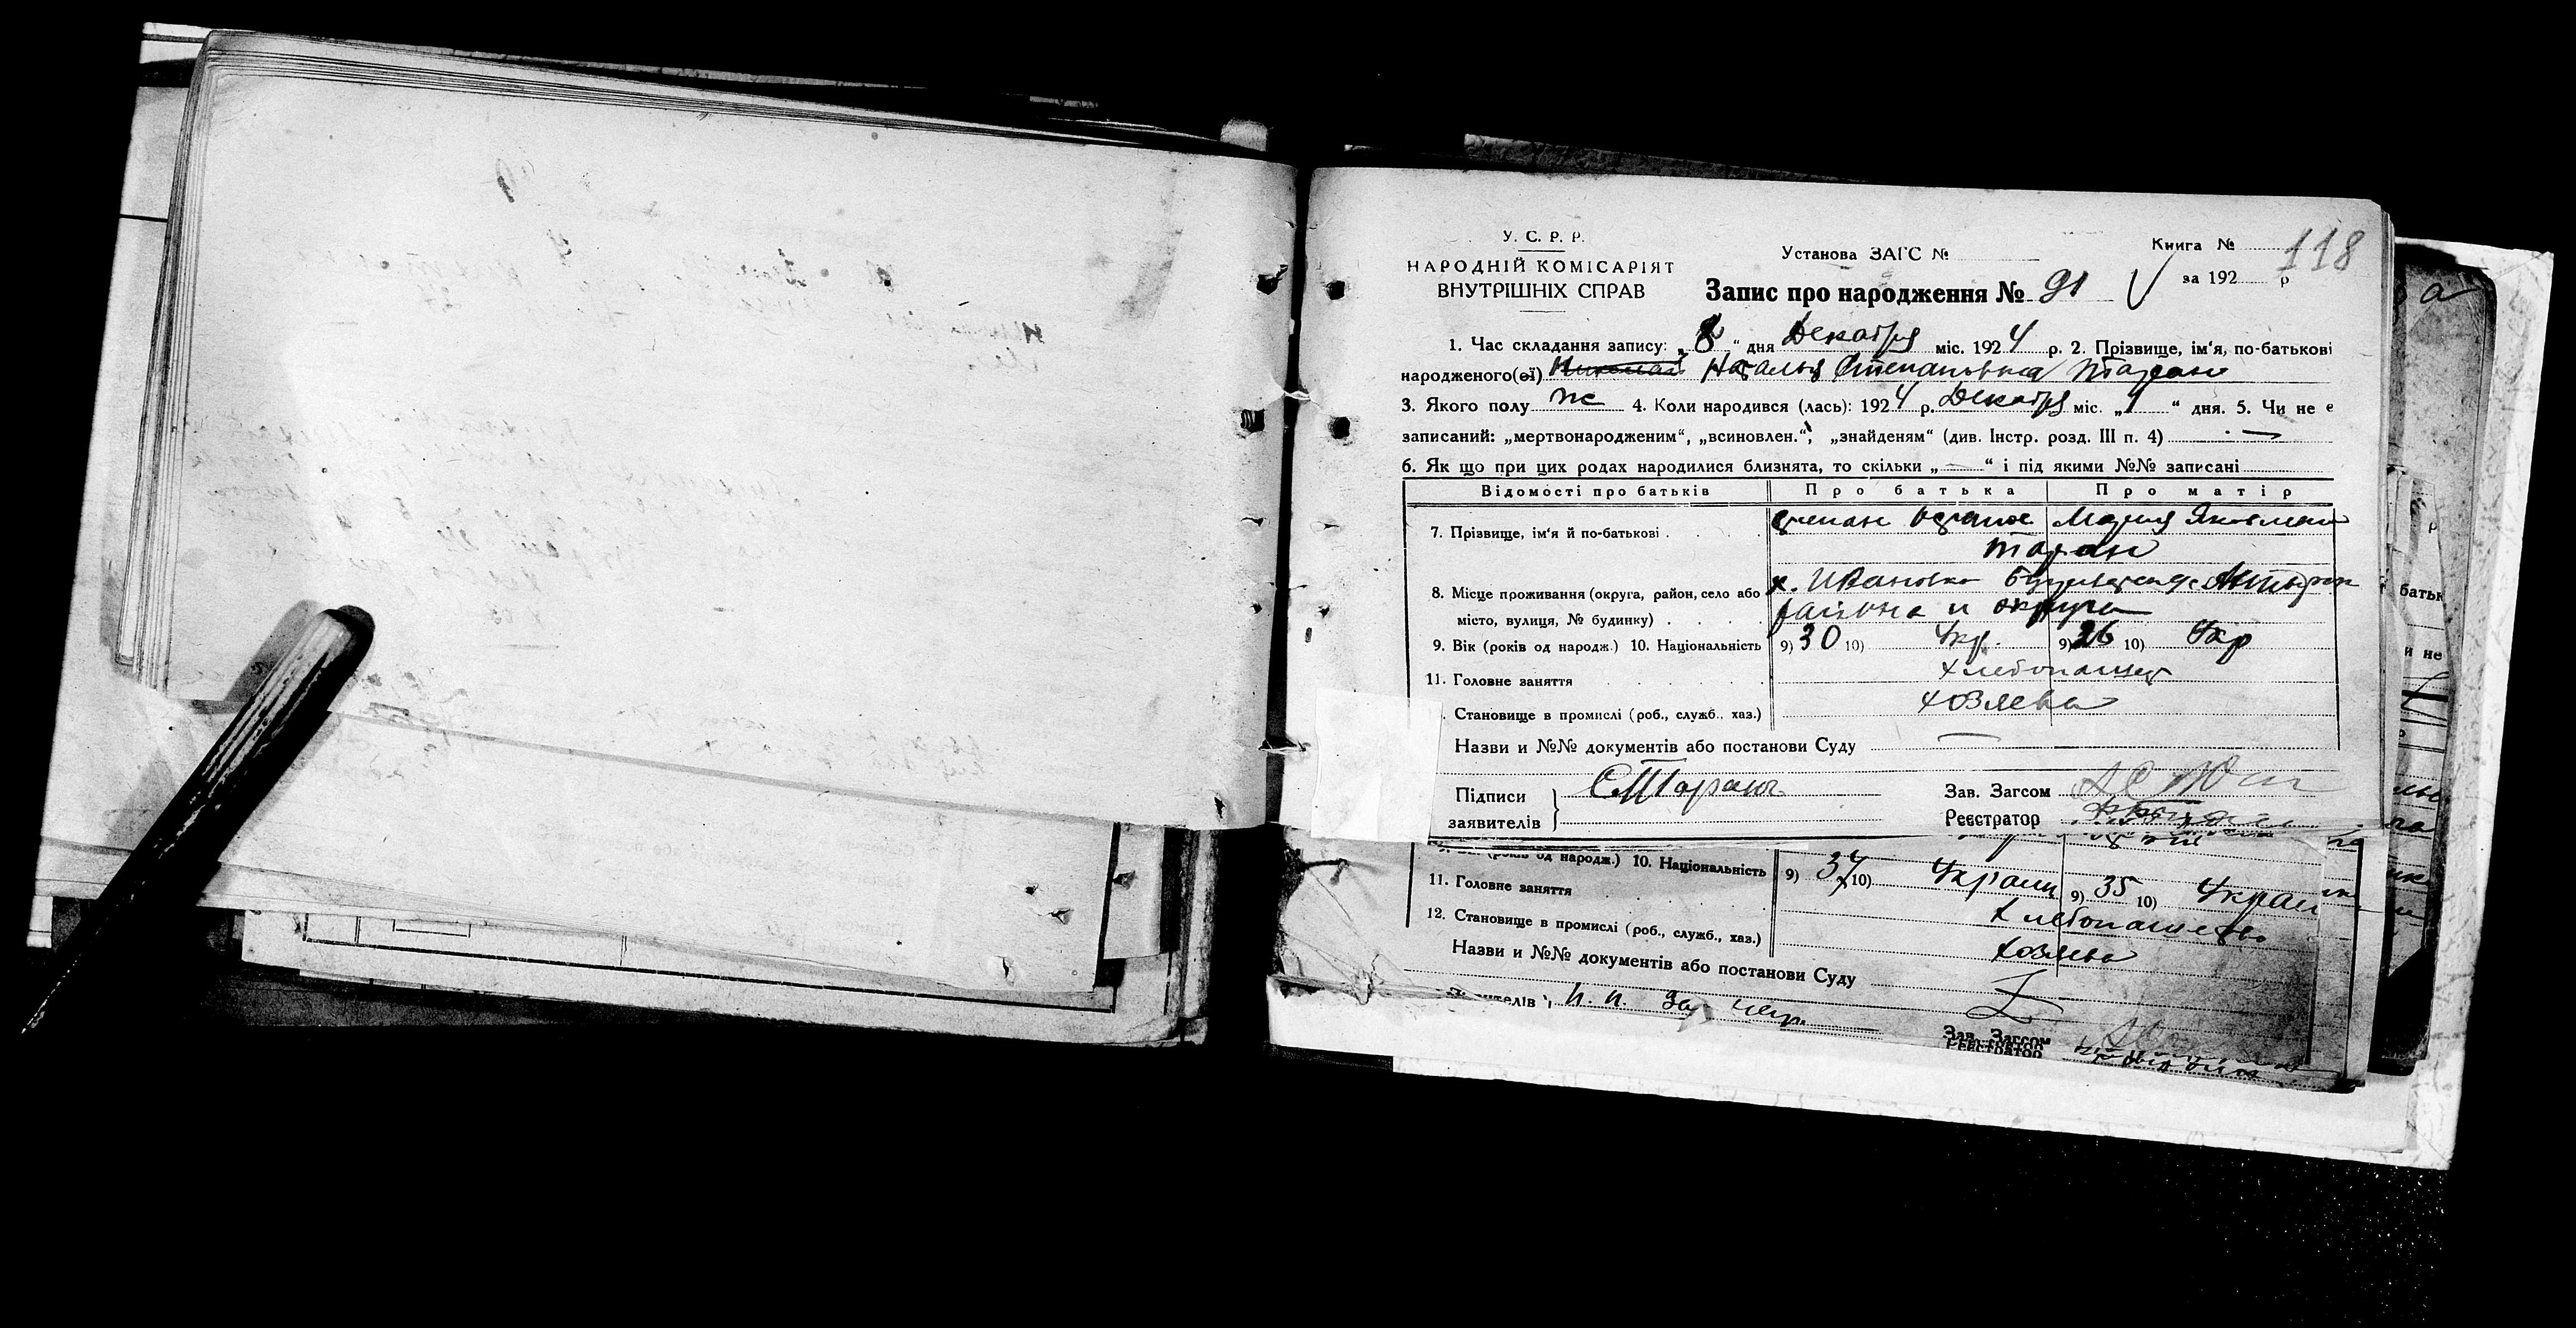 У. С. Р. Р.
НАРОДНІЙ КОМІСАРІЯТ
ВНУТРІШНІХ СПРАВ
Установа ЗАГС №
Книга №
118
за 192 р
Запис про народження № 91
1. Час складання запису: „8“ дня Декабря міс. 1924 р. 2. Прізвище, ім‘я, по-батькові
народженого(ої) Наталья Степановна Таран
3. Якого полу ж 4. Коли народився (лась): 1924 р. Декабря міс. „1“ дня. 5. Чи не є
записаний: „мертвонародженим“, „всиновлен.“, „знайденям“ (див. Інстр. розд. III п. 4) —
6. Як що при цих родах народилися близнята, то скільки „—“ і під якими №№ записані
Відомості про батьків Про батька Про матір
7. Прізвище, ім‘я й по-батькові Степан Мария Яковлевна
Таран
8. Місце проживання (округа, район, село або х. Ивановка
місто, вулиця, № будинку) района и округа
9. Вік (років од народж.) 10. Національність 9) 30 10) Укр. 9) 26 10) Укр
11. Головне заняття хлебопашец
. Становище в промислі (роб., служб., хаз.) хозяева
Назви и №№ документів або постанови Суду —
Підписи
заявителів
СТаран
Зав. Загсом
Реєстратор
(років од народж.) 10. Національність 9) 37 10) Украин 9) 35 10) Украин
11. Головне заняття хлебопашество
12. Становище в промислі (роб., служб., хаз.) хозяева
Назви и №№ документів або постанови Суду
Зав. Загсом
Реєстратор